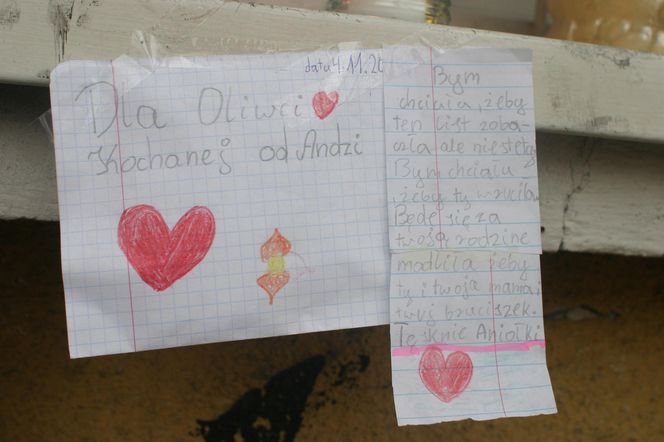 data 4.11.20
Dla Oliwci
Kochanej od Andzi
Bym
chciała, żeby
ten list zoba-
czła ale niestety
Bym chciału
, żeby ty wrucila
Będę się za
twoją rodzine
modliła żeby
ty i twoja mama i
twój braciszek.
Tęsknie Aniołki